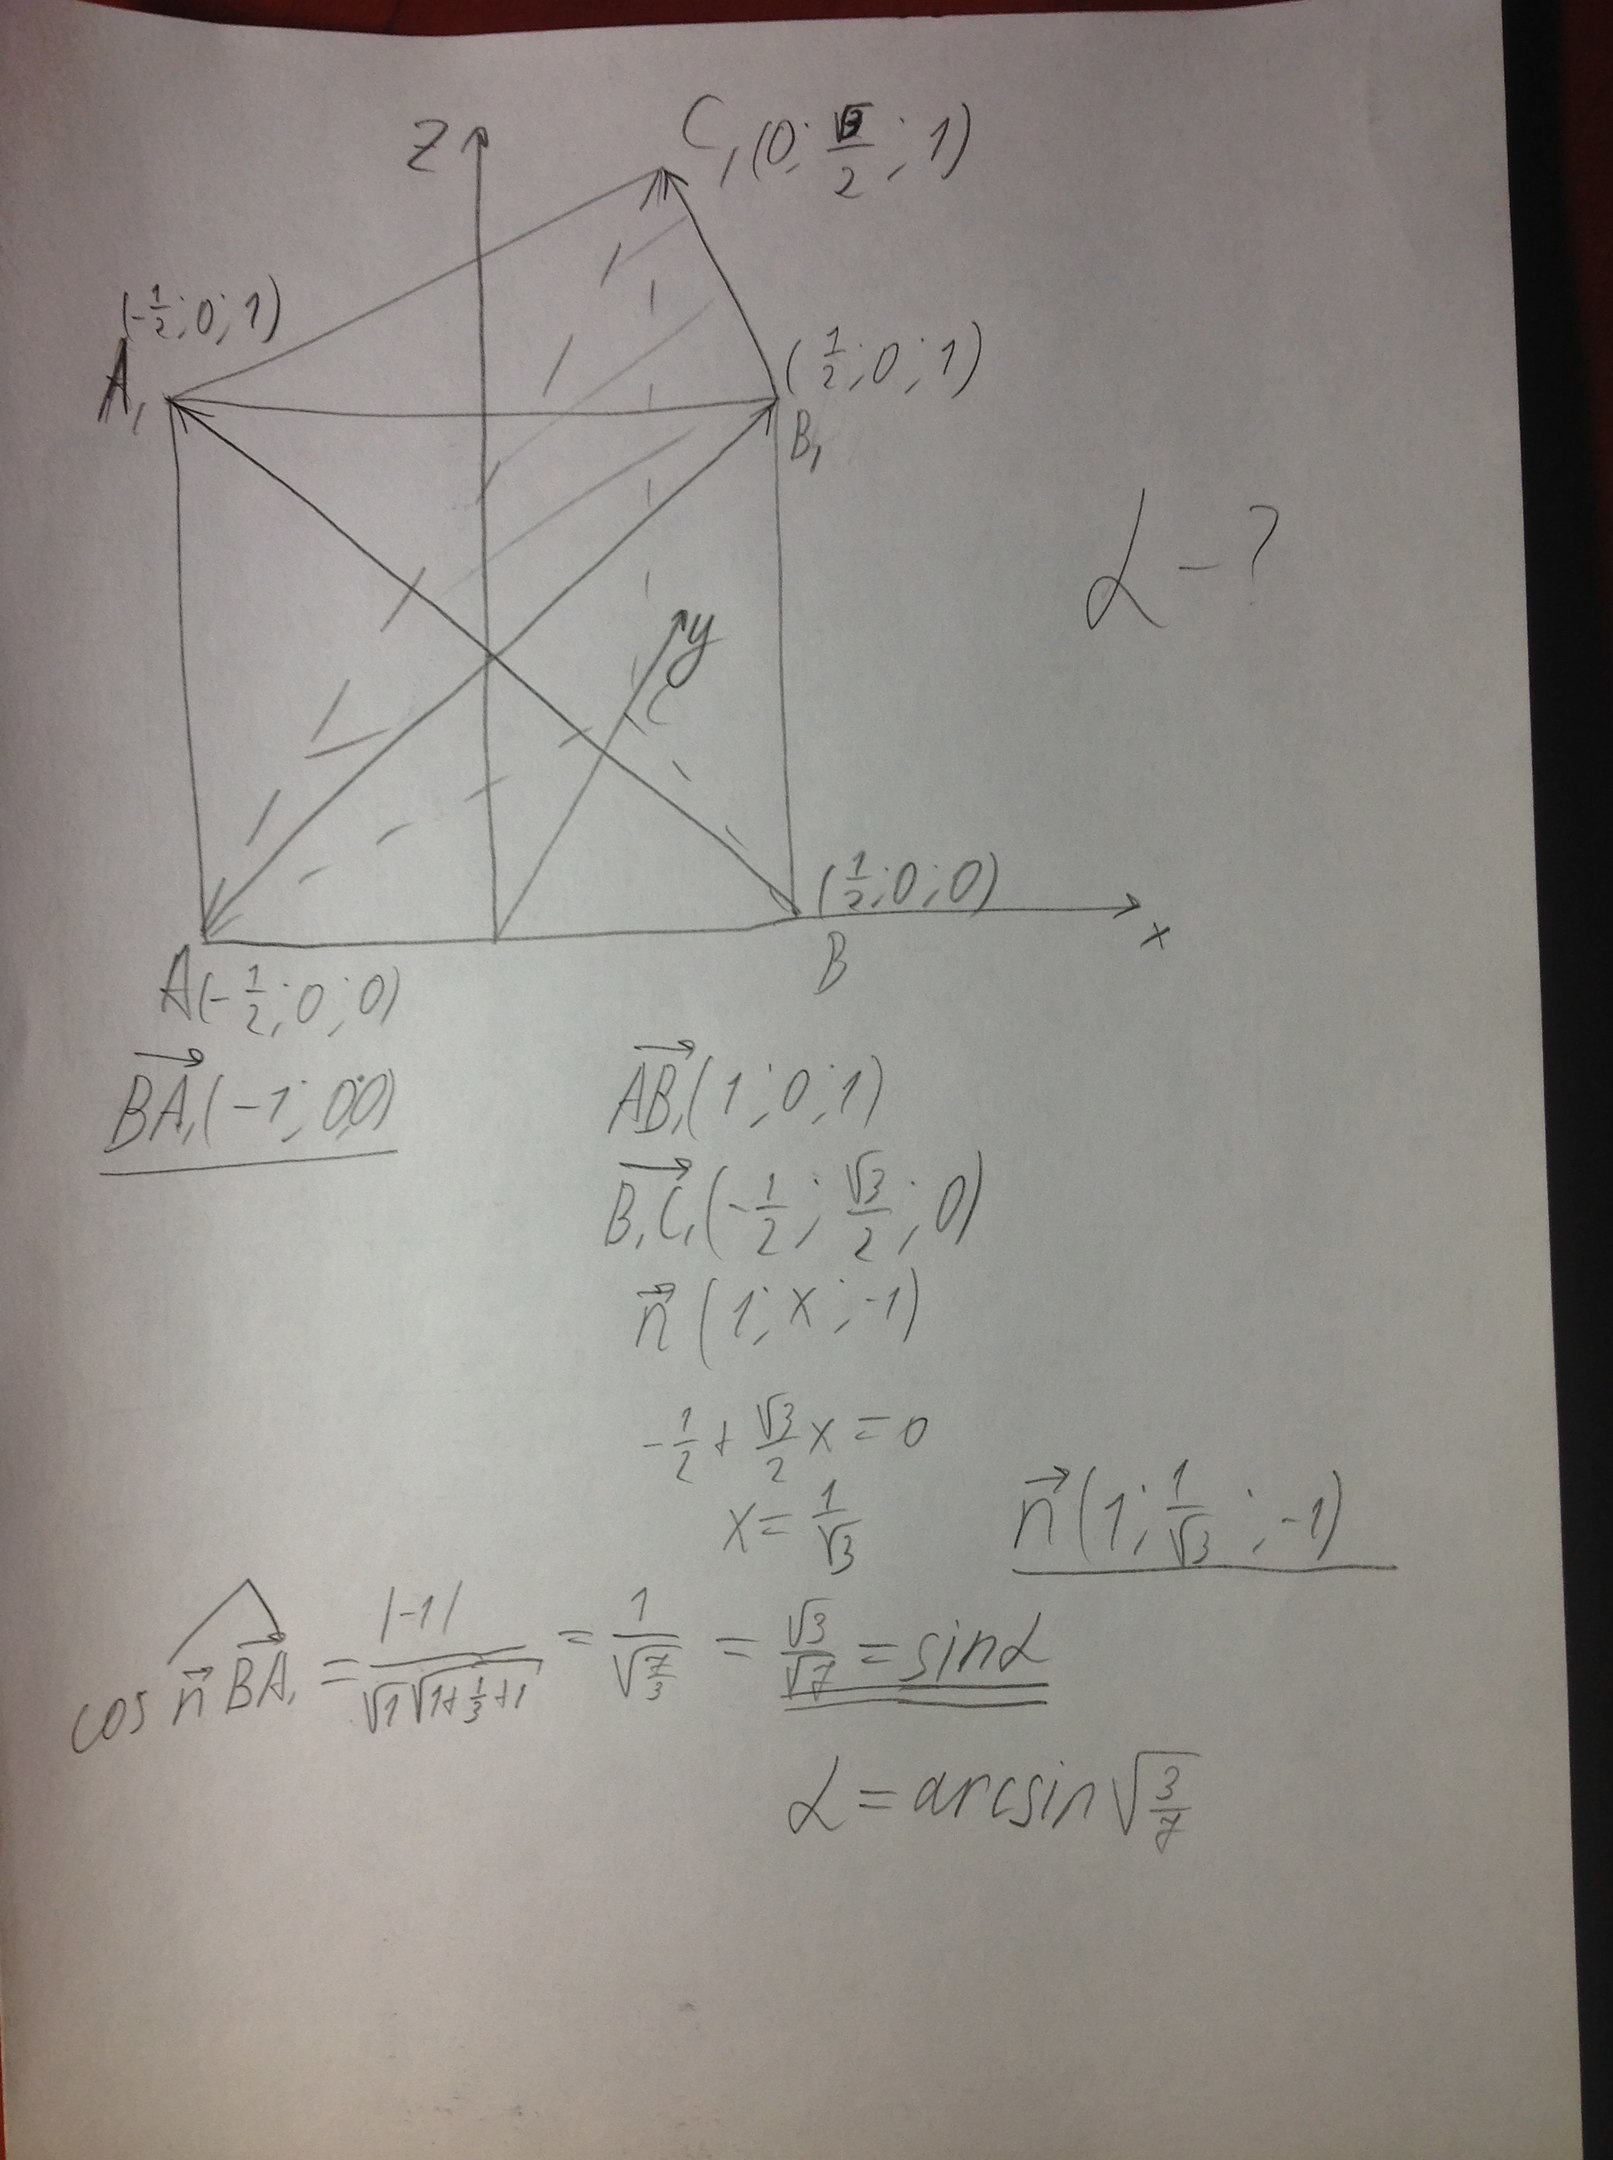 Z
C₁(0; √3/2; 1)
(-1/2; 0; 1)
A₁
(1/2; 0; 1)
B₁
α - ?
y
C
(1/2; 0; 0)
x
B
A(-1/2; 0; 0)
BA₁(-1; 0;0)
AB₁(1; 0; 1)
B₁C₁(-1/2; √3/2; 0)
n(1; x; -1)
-1/2 + √3/2 x = 0
x = 1/√3
n(1; 1/√3; -1)
cos n BA₁ = |-1|/(√1 √(1+1/3+1)) = 1/√(7/3) = √3/√7 = sinα
α = arcsin √(3/7)